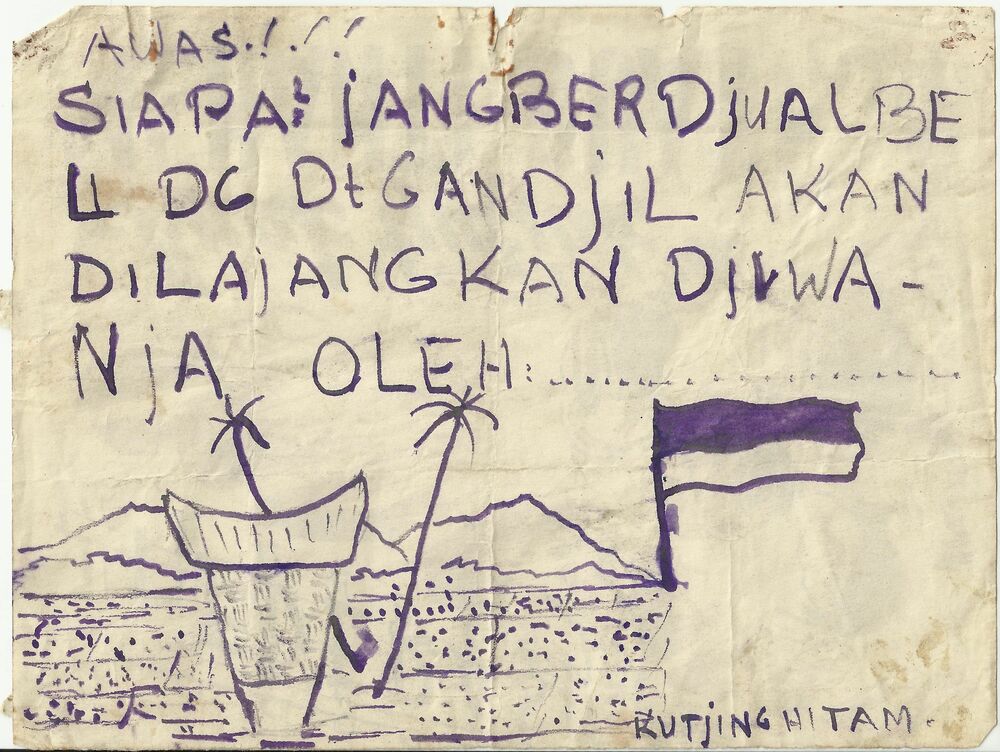 AWAS.!.!!
SIAPA: jANGBERDjUALBE
LI DG DtGANDjIL AKAN
DILAjANGKAN DjIWA-
NjA OLEH:..............................
KUTjING HITAM.